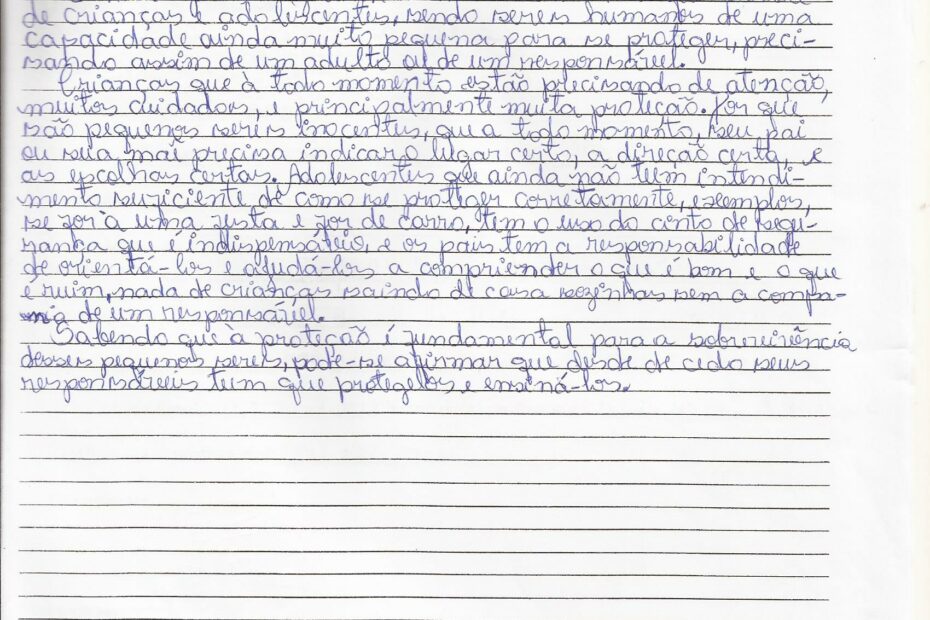 de crianças e adolescentes, sendo seres humanos de uma
capacidade ainda muito pequena para se proteger, preci-
sando assim de um adulto ou de um responsável.
Crianças que à todo momento estão precisando de atenção,
muitos cuidados, e principalmente muita proteção. Por que
são pequenos seres inocentes, que a todo momento, seu pai
ou sua mãe precisa indicar o lugar certo, a direção certa, e
as escolhas certas. Adolescentes que ainda não tem intendi-
mento suficiente de como se proteger corretamente, exemplos,
se for à uma festa e for de carro, tem o uso do cinto de segu-
ranha que é indispensável, e os pais tem a responsabilidade
de orientá-los e ajudá-los a compriender o que é bom e o que
é ruim, nada de crianças saindo de casa sozinhas sem a compa-
nia de um responsável.
Sabendo que à proteção é fundamental para a sobrevivência
desses pequenos seres, pode-se afirmar que desde de cedo seus
responsáveis tem que protegelos e ensiná-los.